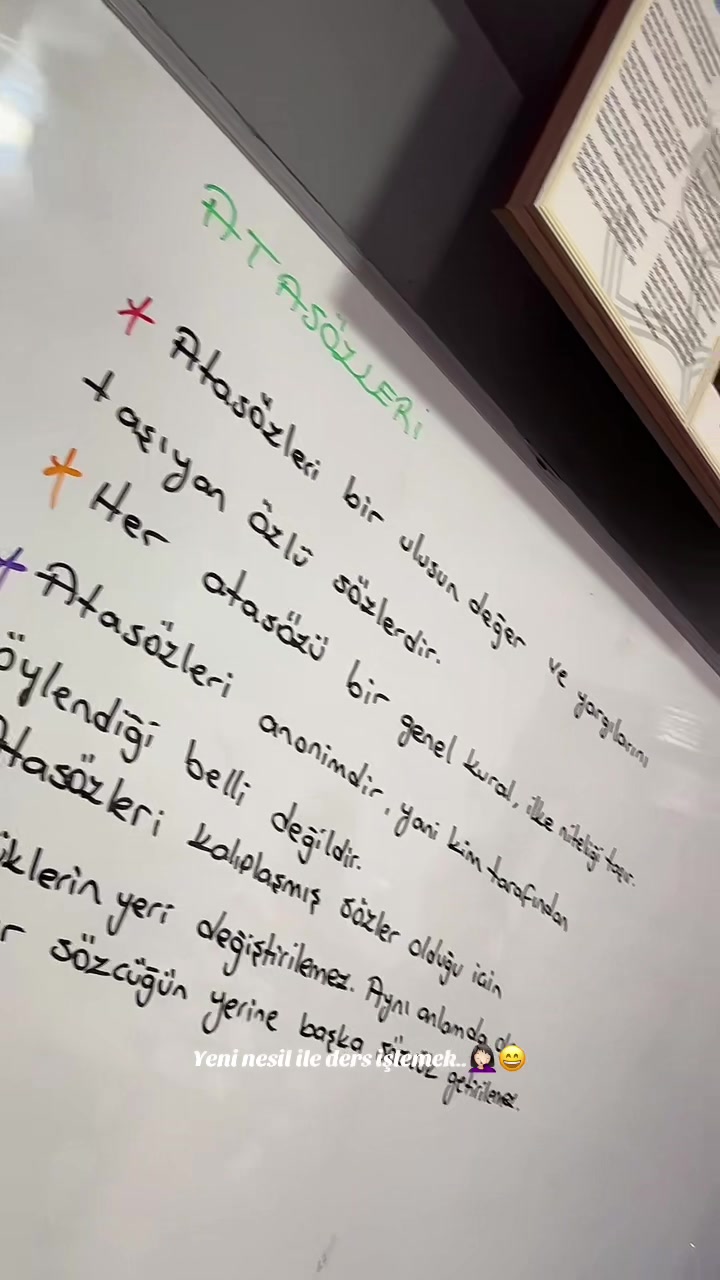 ATASÖZLERİ
* Atasözleri bir ulusun değer ve yargılarını
taşıyan özlü sözlerdir.
* Her atasözü bir genel kural, ilke niteliği taşır.
* Atasözleri anonimdir, yani kim tarafından
öylendiği belli değildir.
Atasözleri kalıplaşmış sözler olduğu için
iklerin yeri değiştirilemez. Aynı anlamda da
r sözcüğün yerine başka sözcük getirilemez.
Yeni nesil ile ders işlemek..🤦🏻‍♀️😄